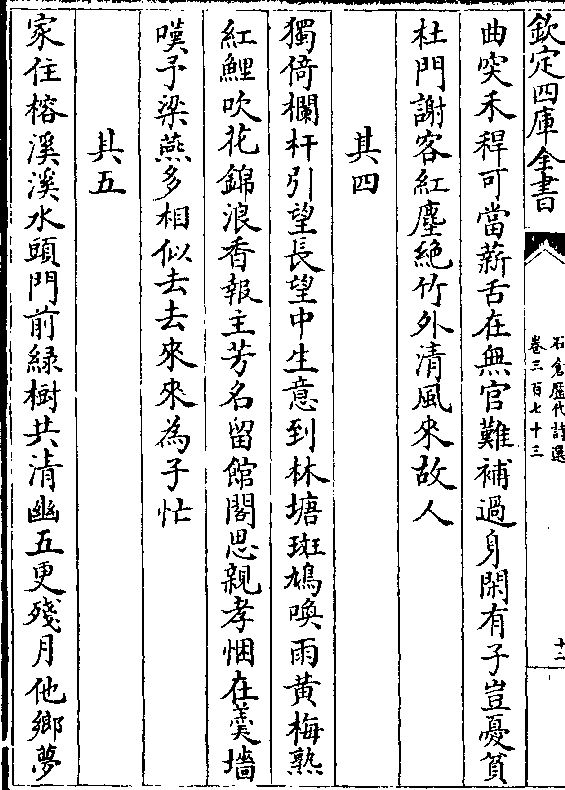 欽定四庫全書
石倉歷代詩選
卷三百七十三
十二
曲突禾稈可當薪舌在無官難補過身閑有子豈憂貧
杜門謝客紅塵絶竹外清風來故人
其四
獨倚欄杆引望長望中生意到林塘斑鳩喚雨黄梅熟
紅鯉吹花錦浪香報主芳名留館閣思親孝悃在羮墻
嘆予梁燕多相似去去來來為子忙
其五
家住榕溪溪水頭門前緑樹共清幽五更殘月他鄉夢